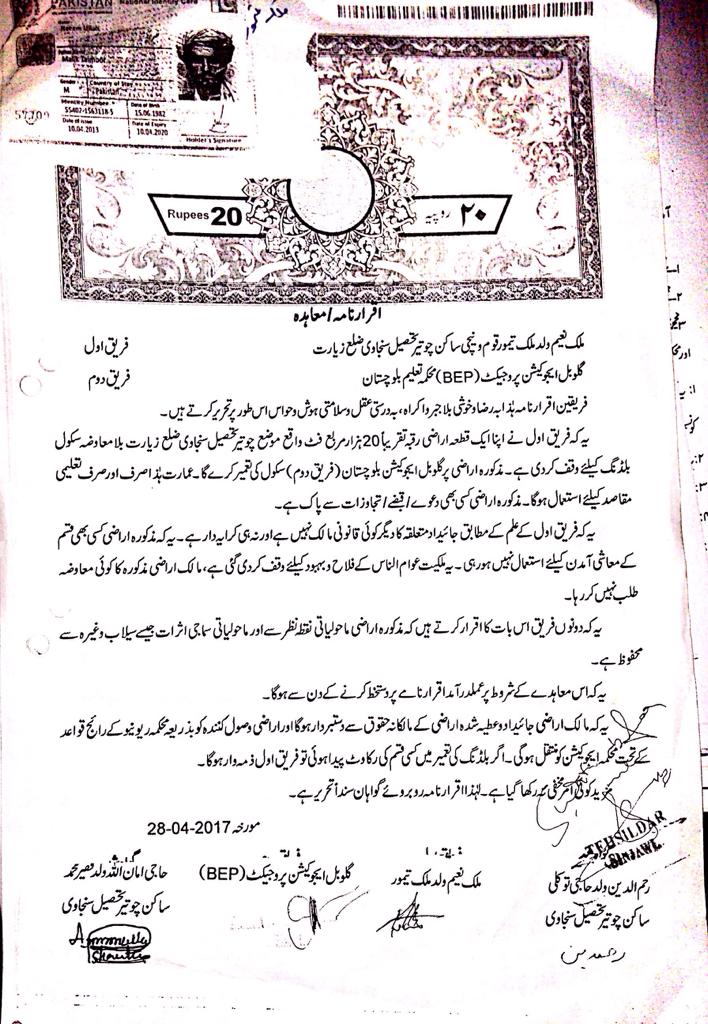 PAKISTAN National Identity Card
Malik Taimoor
M Pakistan
Identity Number Date of Birth
55402-1563118-5 15.06.1982
Date of Issue Date of Expiry
10.04.2013 10.04.2020
Holder's Signature
57709
Rupees 20
۲۰ روپیہ
اقرار نامہ / معاہدہ
ملک نعیم ولد ملک تیمور قوم ونچی ساکن چوتیر تحصیل سنجاوی ضلع زیارت فریق اول
گلوبل ایجوکیشن پروجیکٹ (BEP) محکمہ تعلیم بلوچستان فریق دوم
فریقین اقرار نامہ ہذا بہ رضا و خوشی بلا جبر و اکراہ، بہ درستی عقل و سلامتی ہوش و حواس اس طور پر تحریر کرتے ہیں۔
یہ کہ فریق اول نے اپنا ایک قطعہ اراضی رقبہ تقریباً 20 ہزار مربع فٹ واقع موضع چوتیر تحصیل سنجاوی ضلع زیارت بلا معاوضہ سکول
بلڈنگ کیلئے وقف کر دی ہے۔ مذکورہ اراضی پر گلوبل ایجوکیشن بلوچستان (فریق دوم) سکول کی تعمیر کرے گا۔ عمارت ہذا صرف اور صرف تعلیمی
مقاصد کیلئے استعمال ہوگا۔ مذکورہ اراضی کسی بھی دعوے / قبضے / تجاوزات سے پاک ہے۔
یہ کہ فریق اول کے علم کے مطابق جائیداد متعلقہ کا دیگر کوئی قانونی مالک نہیں ہے اور نہ ہی کرایہ دار ہے۔ یہ کہ مذکورہ اراضی کسی بھی قسم
کے معاشی آمدن کیلئے استعمال نہیں ہو رہی۔ یہ ملکیت عوام الناس کے فلاح و بہبود کیلئے وقف کر دی گئی ہے، مالک اراضی مذکورہ کا کوئی معاوضہ
طلب نہیں کر رہا۔
یہ کہ دونوں فریق اس بات کا اقرار کرتے ہیں کہ مذکورہ اراضی ماحولیاتی نقطہ نظر سے اور ماحولیاتی سماجی اثرات جیسے سیلاب وغیرہ سے
محفوظ ہے۔
یہ کہ اس معاہدے کے شروط پر عملدرآمد اقرار نامے پر دستخط کرنے کے دن سے ہوگا۔
یہ کہ مالک اراضی جائیداد و عطیہ شدہ اراضی کے مالکانہ حقوق سے دستبردار ہوگا اور اراضی وصول کنندہ کو بذریعہ محکمہ ریونیو کے رائج قواعد
کے تحت محکمہ ایجوکیشن کو منتقل ہوگی۔ اگر بلڈنگ کی تعمیر میں کسی قسم کی رکاوٹ پیدا ہوئی تو فریق اول ذمہ وار ہوگا۔
مزید کوئی امر مخفی نہ رکھا گیا ہے۔ لہٰذا اقرار نامہ روبروئے گواہان سنداً تحریر ہے۔
مورخہ 28-04-2017
TEHSILDAR
SINJAWI
رحم الدین ولد حاجی توکلی ملک نعیم ولد ملک تیمور گلوبل ایجوکیشن پروجیکٹ (BEP) حاجی امان اللہ ولد نصیر محمد
ساکن چوتیر تحصیل سنجاوی ساکن چوتیر تحصیل سنجاوی